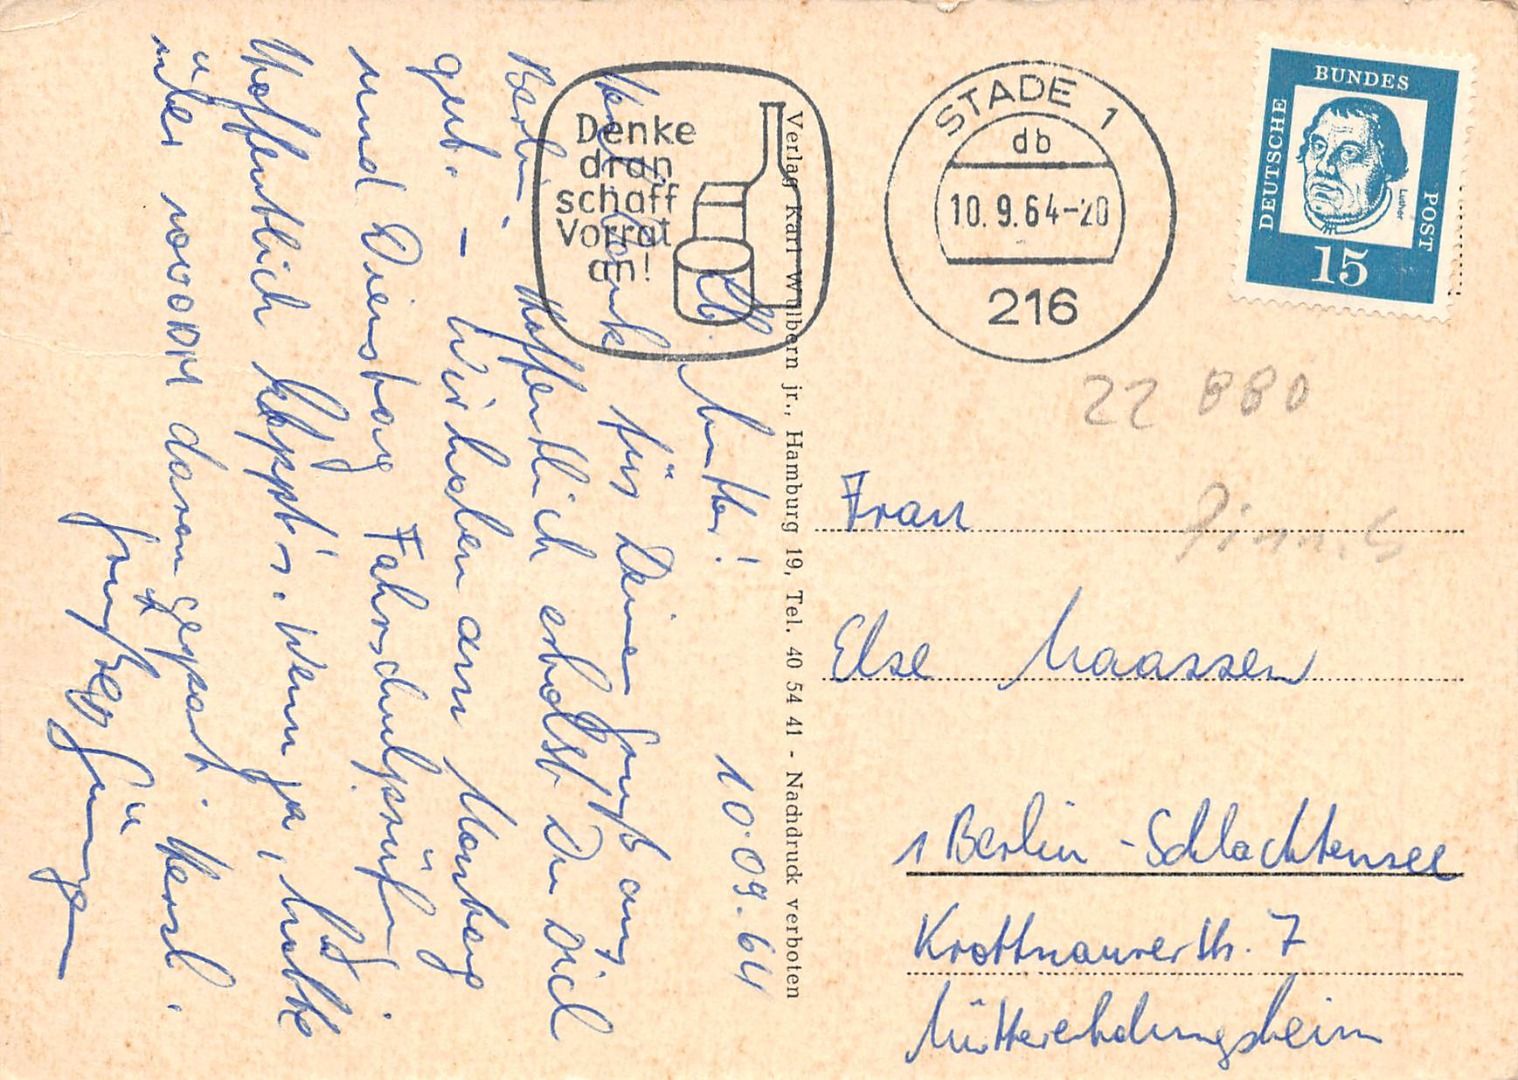 Lb. Mutter! 10.09.64
Vielen Dank für Deinen Gruß aus
Berlin. Hoffentlich erholst Du Dich
gut. – Wir haben am Montag
und Dienstag Fahrschulprüfung.
Hoffentlich klappt's. Wenn ja, hätte
über 1000 DM daran gespart. Herzl.
Grüße
Jürgen
Denke
dran
schaff
Vorrat
an!
Verlag Karl Wulbern jr., Hamburg 19, Tel. 40 54 41 - Nachdruck verboten
STADE 1
db
10.9.64-20
216
DEUTSCHE
BUNDES
POST
Luther
15
22 880
Frau
Else Maassen
1 Berlin-Schlachtensee
Krottnaurerstr. 7
Müttererholungsheim